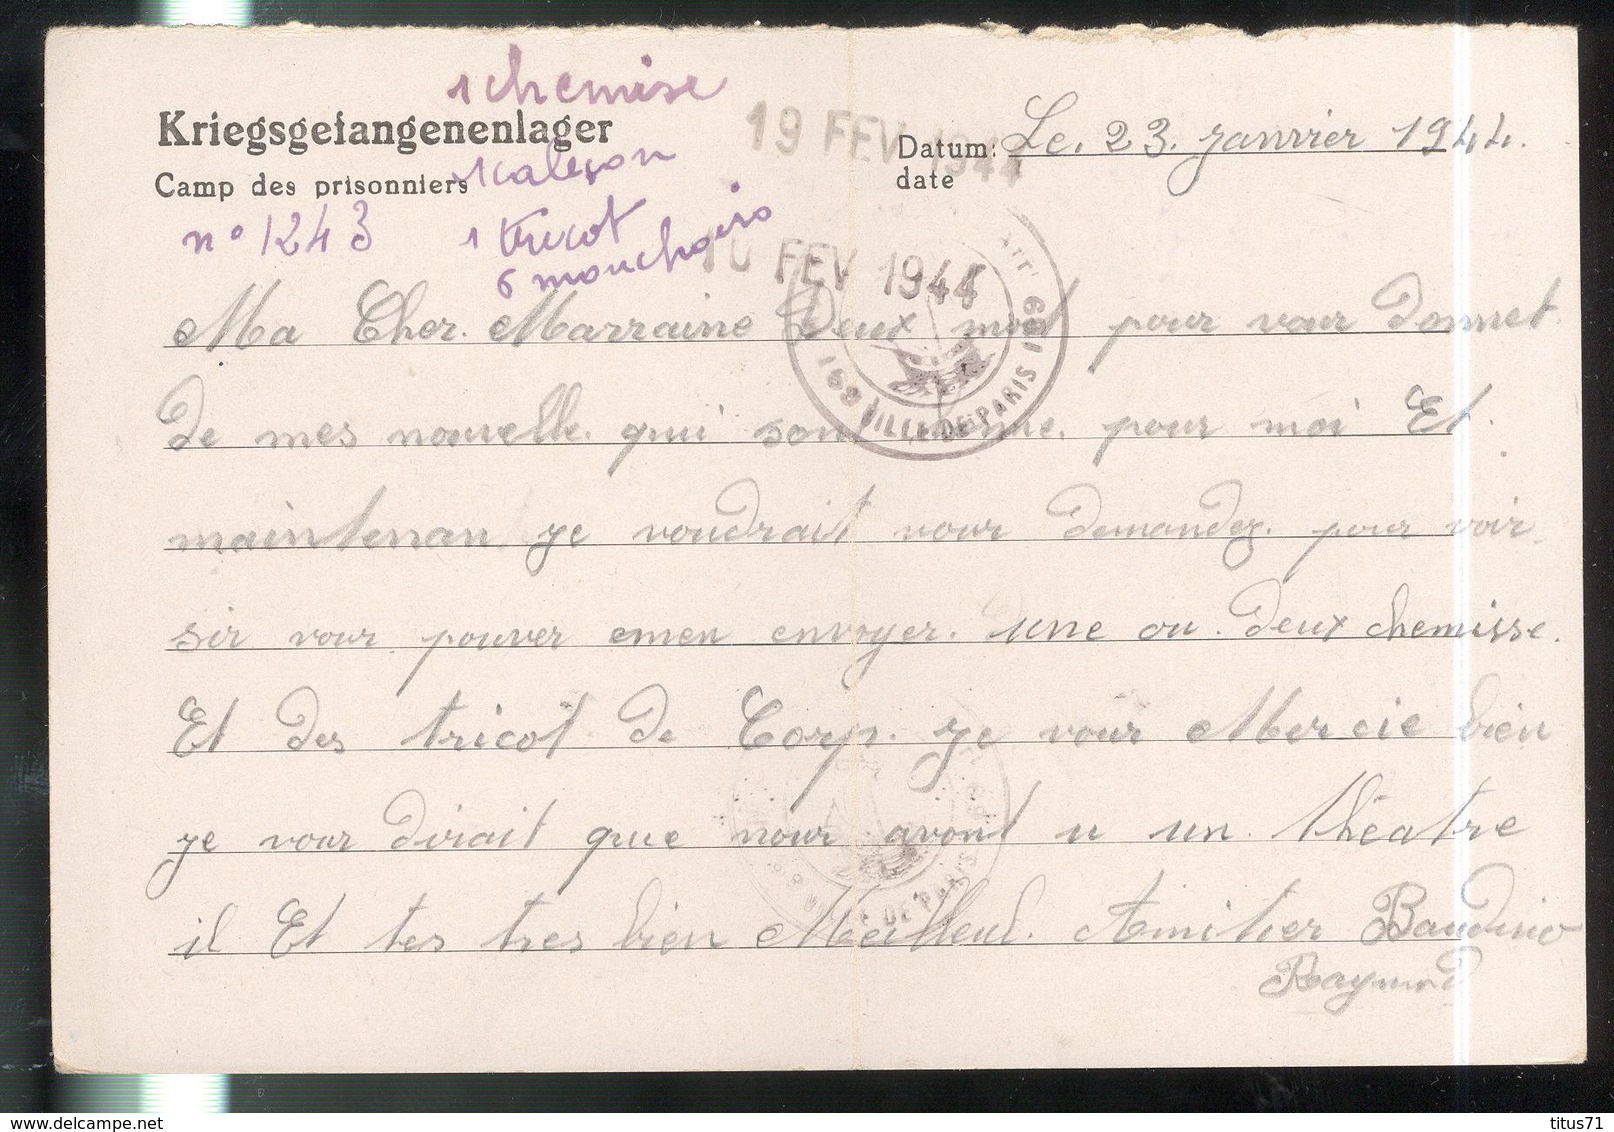 1 chemise
Kriegsgefangenenlager
Camp des prisonniers
1 caleçon
n° 1243
1 tricot
6 mouchoirs
19 FEV 1944
Datum: Le. 23. janvier 1944.
date
FEV 1944
Ma Cher. Marraine Deux mot pour vour donnet
De mes nouvelle. qui sont pour moi Et.
maintenan je voudrait vour demandez. pour voir
sir vour pouver emen envoyer. une ou. deux chemisse.
Et des tricot de Corp. je vour Mercie bien
je vour dirait que nour avont u un. théatre
il Et tes tres bien Meilleul. Amitier Baudino
Raymond
VILLE DE PARIS
VILLE DE PARIS
titus71